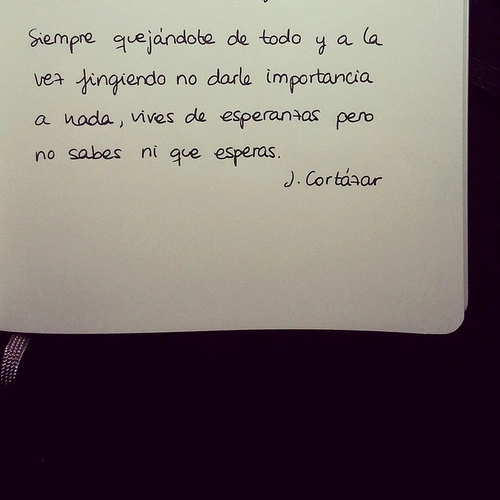 Siempre quejándote de todo y a la
vez fingiendo no darle importancia
a nada, vives de esperanzas pero
no sabes ni que esperas.
J. Cortázar